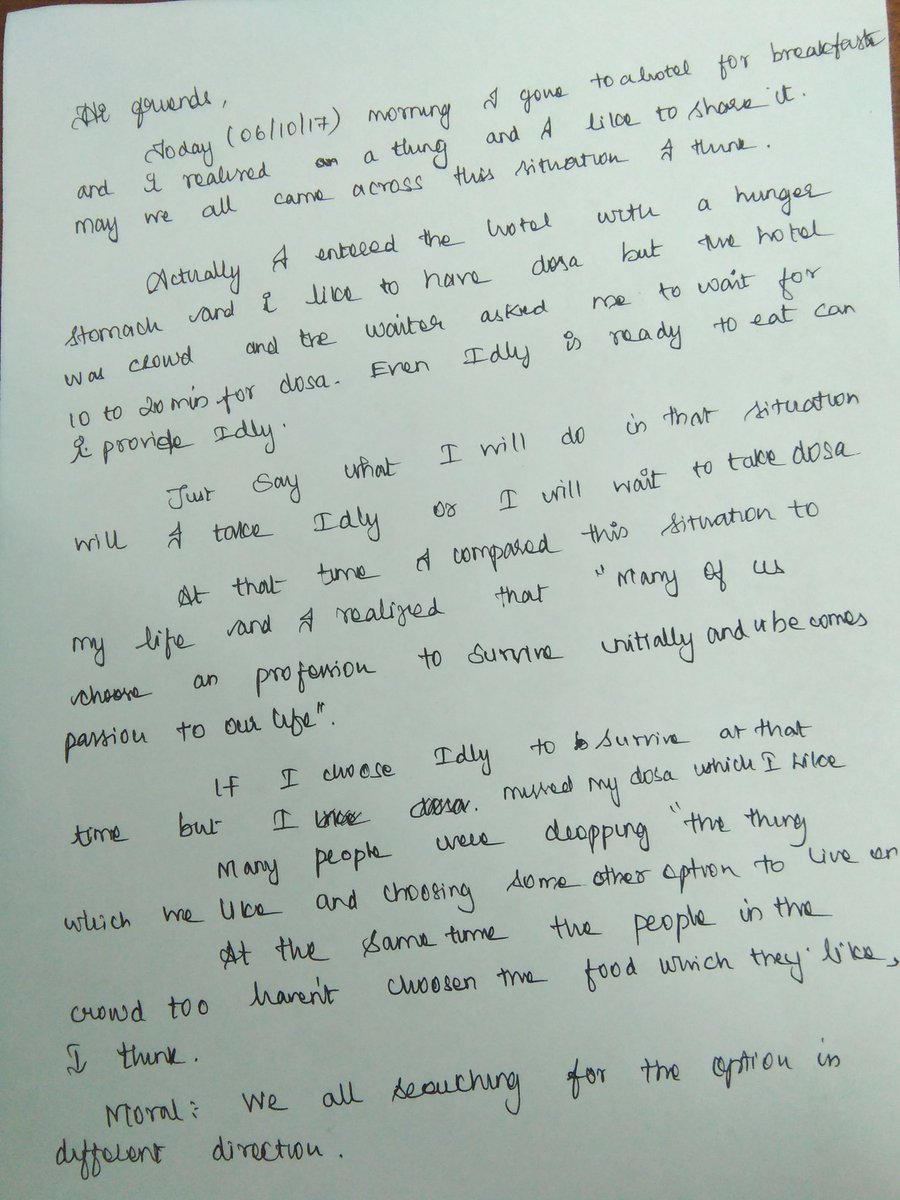 Hi friends,
Today (06/10/17) morning I gone to a hotel for breakfast
and I realized a thing and I like to share it.
may we all came across this situation I think.
Actually I entered the hotel with a hunger
stomach and I like to have dosa but the hotel
was crowd and the waiter asked me to wait for
10 to 20 min for dosa. Even Idly is ready to eat can
I provide Idly.
Just say what I will do in that situation
will I take Idly or I will wait to take dosa
At that time I compared this situation to
my life and I realized that "Many of us
choose an profession to survive initially and it becomes
passion to our life".
If I choose Idly to survive at that
time but I missed my dosa which I like
Many people were dropping "the thing
which we like and choosing some other option to live on
At the same time the people in the
crowd too haven't choosen the food which they like,
I think.
Moral: We all searching for the option in
different direction.